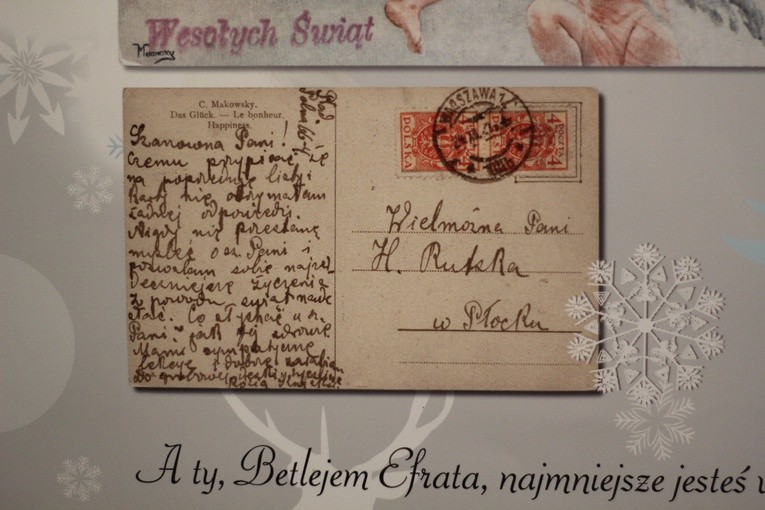 Wesołych Świąt
C. Makowsky.
Das Glück. — Le bonheur.
Happiness.
Szanowna Pani!
Czemu przypisać że
na poprzednie listy i
karty nie otrzymałam
żadnej odpowiedzi.
Nigdy nie przestanę
myśleć o sz. Pani i
pozwalam sobie najser
deczniejsze życzenia
z powodu świąt nade
słać. Co słychać u sz.
Pani? jak jej zdrowie
Mamy sympatyczne
lekcje i dobrze
POLSKA
4
POCZTA
WARSZAWA 1
Wielmożna Pani
H. Rutska
w Płocku
A ty, Betlejem Efrata, najmniejsze jesteś